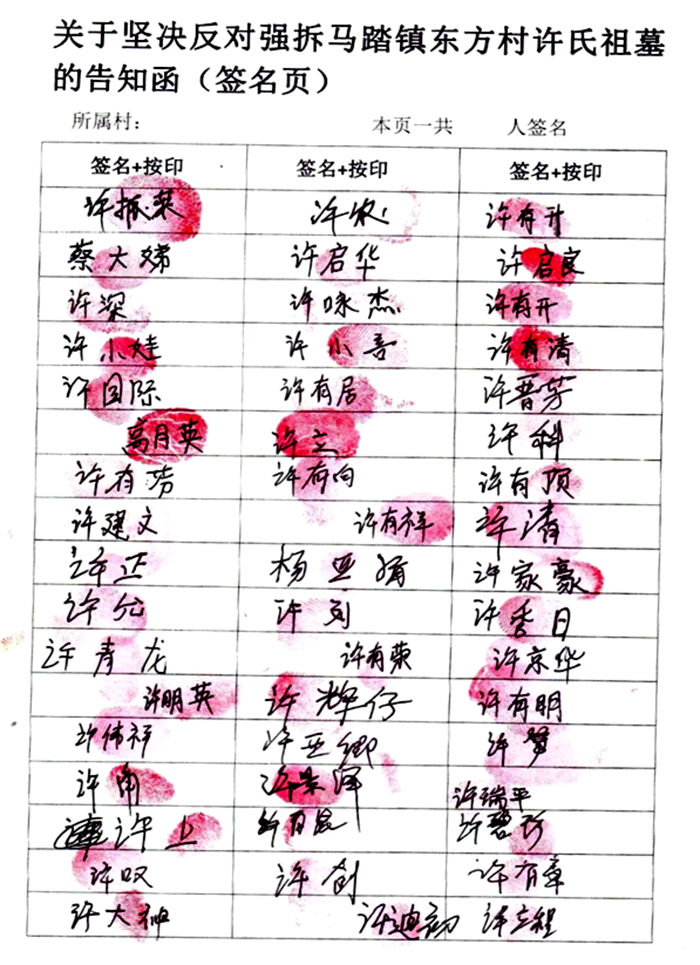 关于坚决反对强拆马踏镇东方村许氏祖墓
的告知函（签名页）
所属村： 本页一共 人签名
签名+按印 签名+按印 签名+按印
许振荣 许 许有升
蔡大嫦 许启华 许启良
许深 许咏杰 许有开
许小娃 许小吾 许有清
许国际 许有居 许晋芳
高月英 许立 许科
许有芳 许有向 许有顶
许建文 许有祥 许清
许正 杨亚娟 许家豪
许允 许 许季日
许青龙 许有荣 许京华
许明英 许辉仔 许有明
许伟祥 许亚卿 许梦
许角 许 许瑞平
许上 许 许碧
许叹 许创 许有章
许大神 许迪韧 许立程